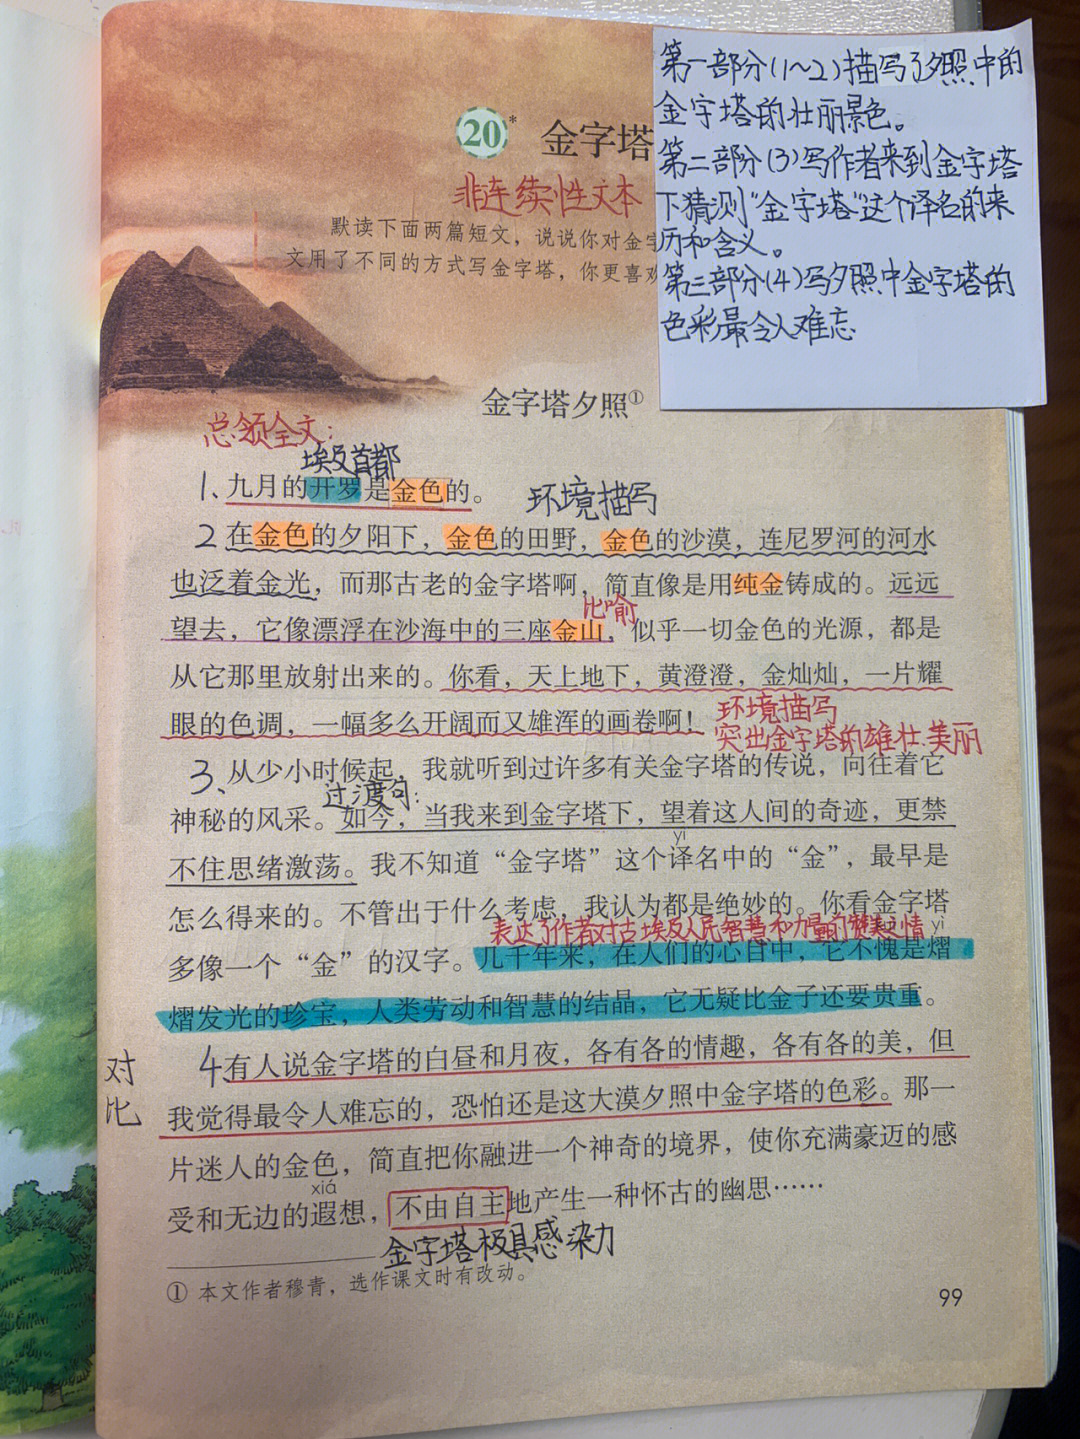 第一部分(1~2)描写了夕照中的
金字塔的壮丽景色。
第二部分(3)写作者来到金字塔
下猜测"金字塔"这个译名的来
历和含义。
第三部分(4)写夕照中金字塔的
色彩最令人难忘
20* 金字塔
非连续性文本
默读下面两篇短文，说说你对金字
文用了不同的方式写金字塔，你更喜欢
金字塔夕照①
总领全文：
埃及首都
1、九月的开罗是金色的。
环境描写
2 在金色的夕阳下，金色的田野，金色的沙漠，连尼罗河的河水
也泛着金光，而那古老的金字塔啊，简直像是用纯金铸成的。远远
比喻
望去，它像漂浮在沙海中的三座金山，似乎一切金色的光源，都是
从它那里放射出来的。你看，天上地下，黄澄澄，金灿灿，一片耀
眼的色调，一幅多么开阔而又雄浑的画卷啊！
环境描写
突出金字塔的雄壮、美丽
3、从少小时候起，我就听到过许多有关金字塔的传说，向往着它
过渡句：
神秘的风采。如今，当我来到金字塔下，望着这人间的奇迹，更禁
yì
不住思绪激荡。我不知道“金字塔”这个译名中的“金”，最早是
怎么得来的。不管出于什么考虑，我认为都是绝妙的。你看金字塔
表达了作者对古埃及人民智慧和力量的赞美之情
yì
多像一个“金”的汉字。几千年来，在人们的心目中，它不愧是熠
熠发光的珍宝，人类劳动和智慧的结晶，它无疑比金子还要贵重。
4、有人说金字塔的白昼和月夜，各有各的情趣，各有各的美，但
对比
我觉得最令人难忘的，恐怕还是这大漠夕照中金字塔的色彩。那一
片迷人的金色，简直把你融进一个神奇的境界，使你充满豪迈的感
xiá
受和无边的遐想，不由自主地产生一种怀古的幽思……
金字塔极具感染力
① 本文作者穆青，选作课文时有改动。
99